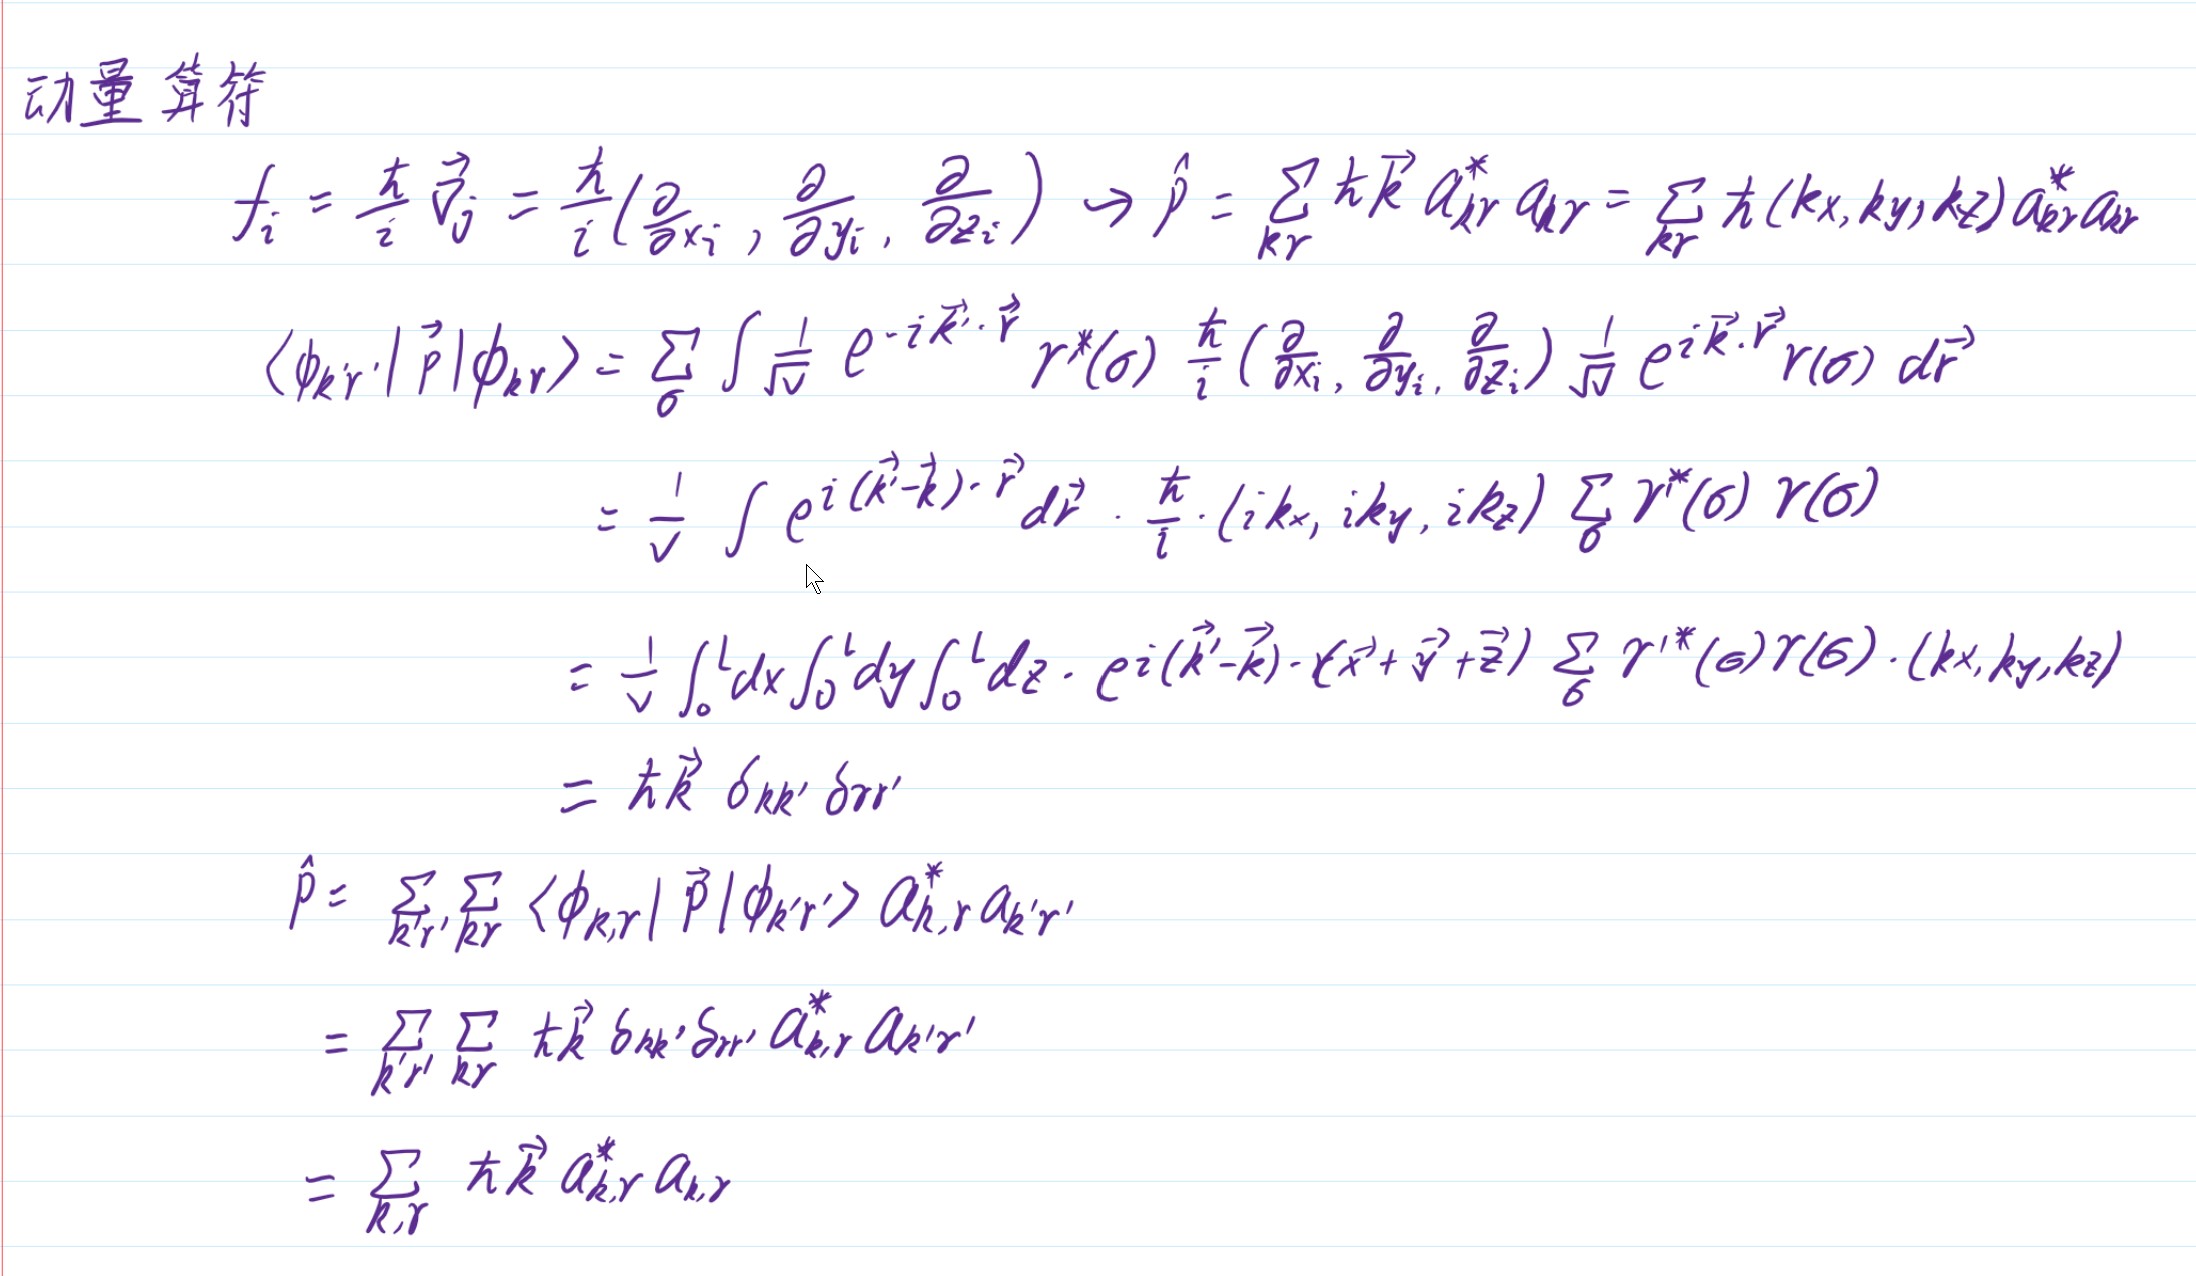 动量算符
f_i = ℏ/i ∇⃗_j = ℏ/i (∂/∂x_i, ∂/∂y_i, ∂/∂z_i) → p̂ = Σ_{kr} ℏk⃗ a*_{kr} a_{kr} = Σ_{kr} ℏ(kx, ky, kz) a*_{kr} a_{kr}
⟨ϕ_{k'r'}|p⃗|ϕ_{kr}⟩ = Σ_σ ∫ 1/√V e^{-ik⃗'·r⃗} r'*(σ) ℏ/i (∂/∂x_i, ∂/∂y_i, ∂/∂z_i) 1/√V e^{ik⃗·r⃗} r(σ) dr⃗
= 1/V ∫ e^{i(k⃗'-k⃗)·r⃗} dr⃗ · ℏ/i · (ikx, iky, ikz) Σ_σ r'*(σ) r(σ)
= 1/V ∫_0^L dx ∫_0^L dy ∫_0^L dz · e^{i(k⃗'-k⃗)·(x⃗+y⃗+z⃗)} Σ_σ r'*(σ) r(σ) · (kx, ky, kz)
= ℏk⃗ δ_{kk'} δ_{rr'}
p̂ = Σ_{k'r'} Σ_{kr} ⟨ϕ_{k,r}|p⃗|ϕ_{k'r'}⟩ a*_{k,r} a_{k'r'}
= Σ_{k'r'} Σ_{kr} ℏk⃗ δ_{kk'} δ_{rr'} a*_{k,r} a_{k'r'}
= Σ_{k,r} ℏk⃗ a*_{k,r} a_{k,r}